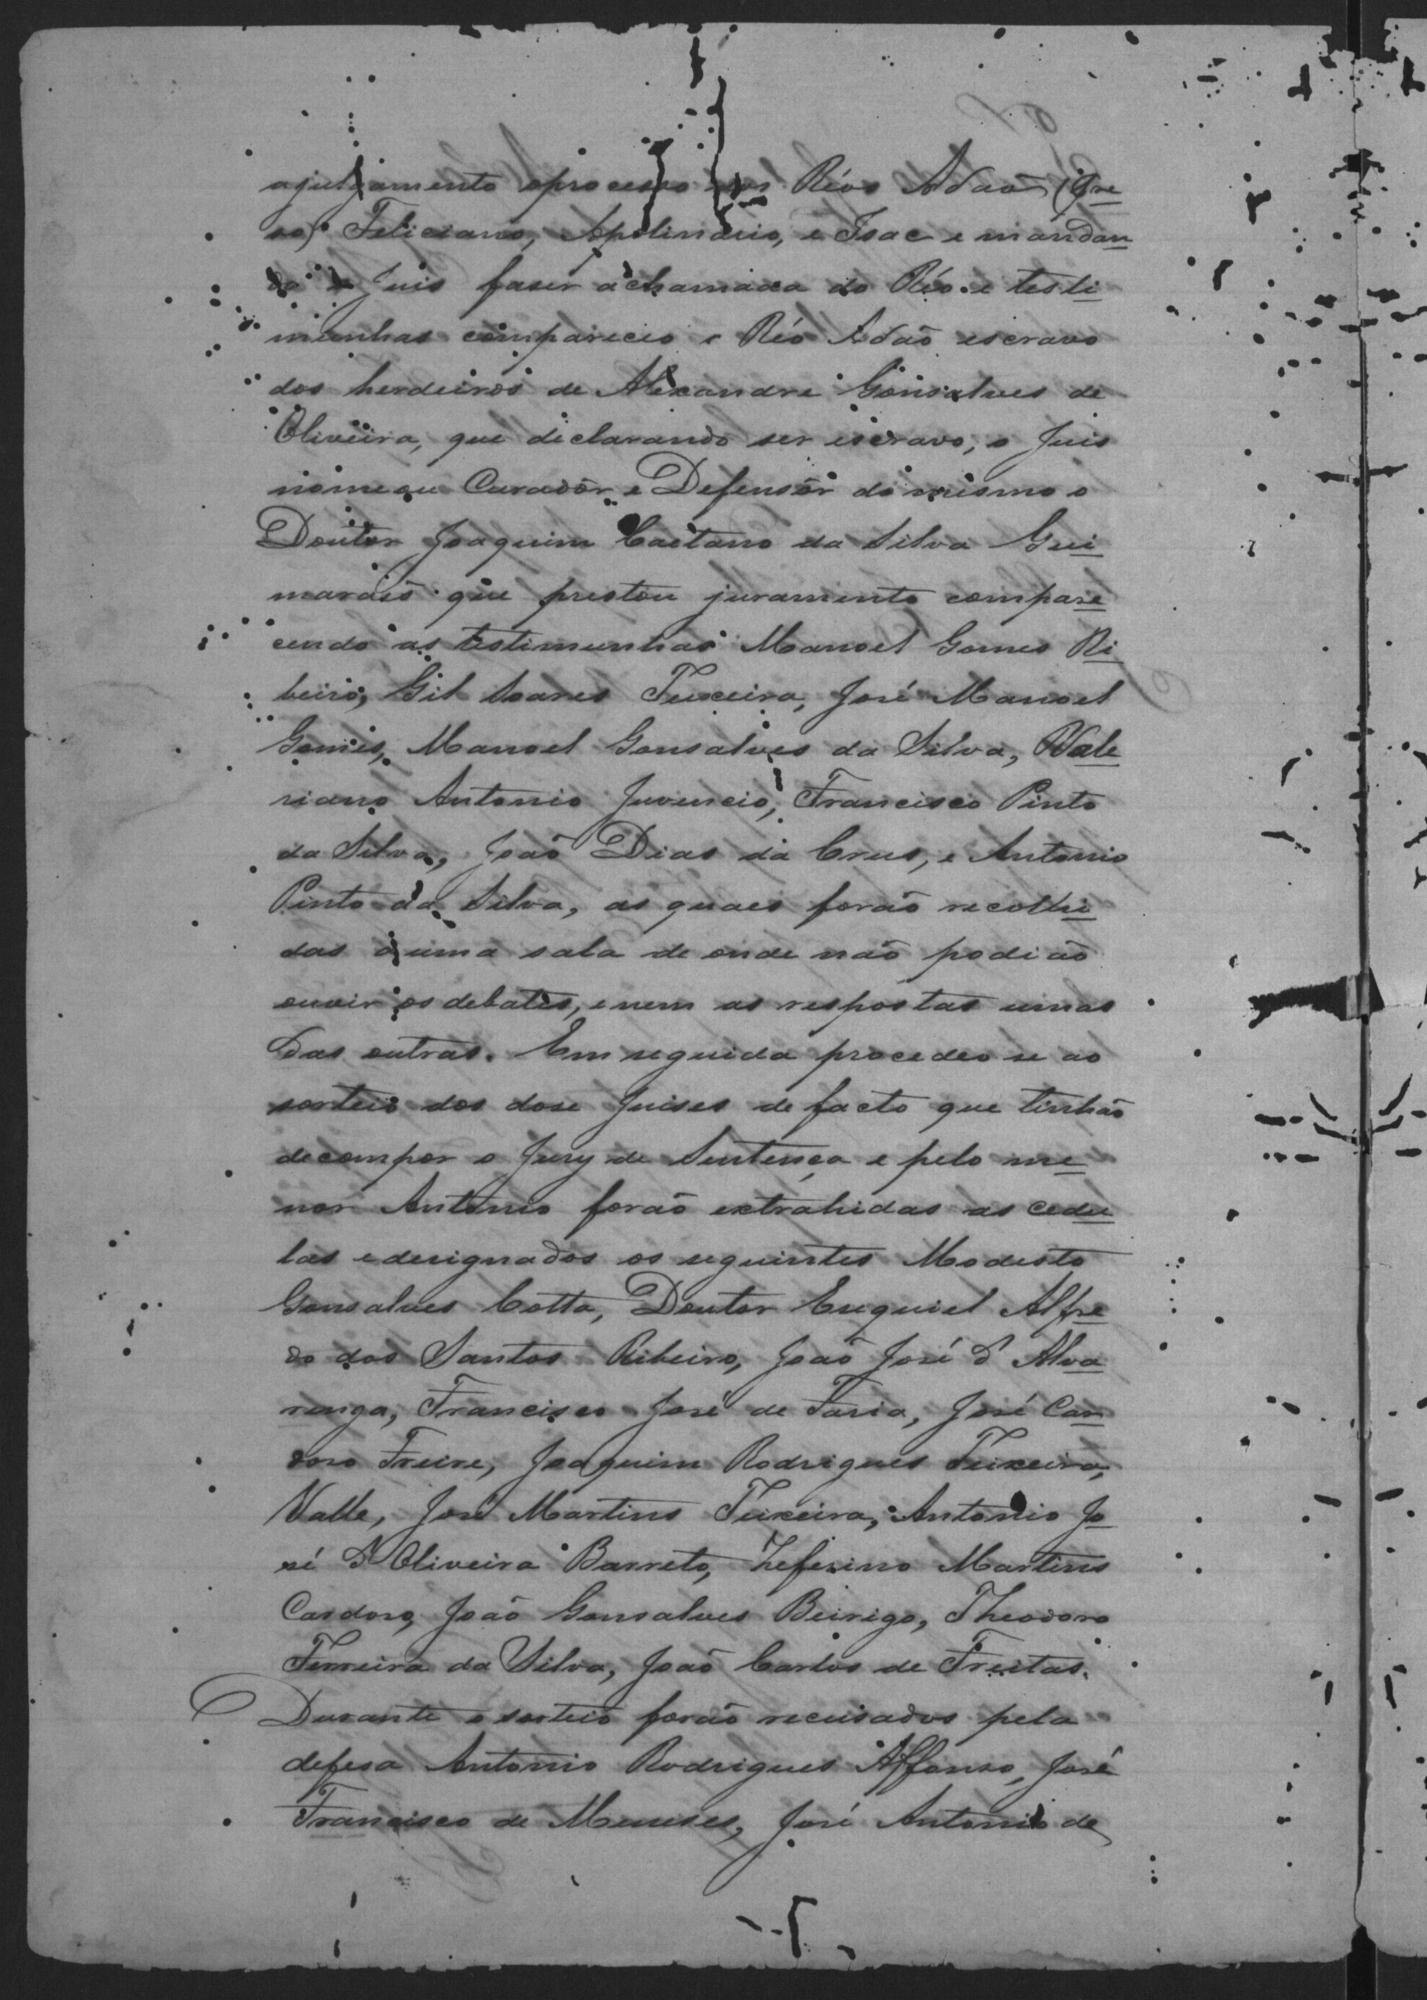 ajulgamento oprocesso dos Réos Adaõ (Pre
so) Feliciano, Apolinario, e Isac e mandan
do o Juis faser achamada do Réo e testi
munhas compareceo o Réo Adaõ escravo
dos herdeiros de Alexandre Gonsalves de
Oliveira, que declarando ser escravo, o Juis
nomeou Curadôr e Defensôr do mesmo o
Doutor Joaquim Caetano da Silva Gui
maraẽs que prestou juramento compare
cendo as testimunhas Manoel Gomes Ri
beiro, Gil Soares Teixeira, José Manoel
Gomes, Manoel Gonsalves da Silva, Vale
riano Antonio Juvencio, Francisco Pinto
da Silva, Joaõ Dias da Crus, e Antonio
Pinto da Silva, as quaes foraõ recolhi
das a uma sala de onde naõ podiaõ
ouvir os debates, e nem as respostas umas
das outras. Em seguida procedeo se ao
sorteio dos dose Juises de facto que tinhaõ
decompor o Jury de Sentença e pelo me
nor Antonio foraõ extrahidas as cedu
las e designados os seguintes Modesto
Gonsalves Cotta, Doutor Esequiel Alfre
do dos Santos Ribeiro, Joaõ José d'Alva
renga, Francisco José de Faria, José Car
doso Freire, Joaquim Rodrigues Teixeira,
Valle, José Martins Teixeira, Antonio Jo
sé d'Oliveira Barreto, Zeferino Martins
Cardoso, Joaõ Gonsalves Beirigo, Theodoro
Ferreira da Silva, Joaõ Carlos de Freitas.
Durante o sorteio foraõ recusados pela
defesa Antonio Rodrigues Affonso, José
Francisco de Meneses, José Antonio de